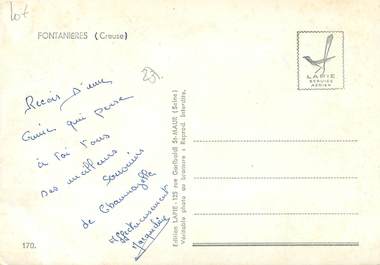 lot
FONTANIERES (Creuse)
237.
Reçois d'une
amie qui pense
à toi tous
ses meilleurs
souvenirs
de
Affectueusement
Jacqueline
170.
Edition LAPIE - 125 rue Garibaldi St-MAUR (Seine)
Véritable photo au bromure - Reprod. interdite.
LAPIE
SERVICE
AERIEN